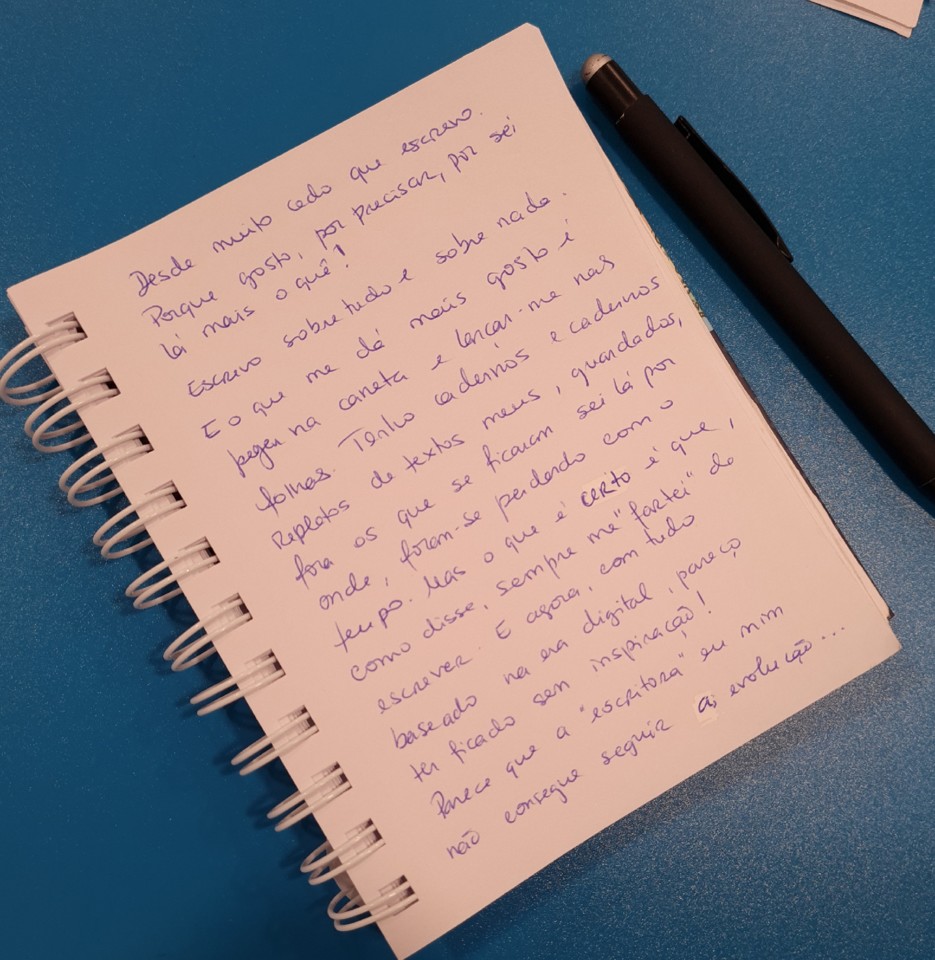 Desde muito cedo que escrevo.
Porque gosto, por precisar, por sei
lá mais o quê!
Escrevo sobre tudo e sobre nada.
E o que me dá mais gosto é
pegar na caneta e lançar-me nas
folhas. Tenho cadernos e cadernos
repletos de textos meus, guardados,
fora os que se ficaram sei lá por
onde, foram-se perdendo com o
tempo. Mas o que é certo é que,
como disse, sempre me "fartei" de
escrever. E agora, com tudo
baseado na era digital, pareço
ter ficado sem inspiração!
Parece que a "escritora" em mim
não consegue seguir a evolução...